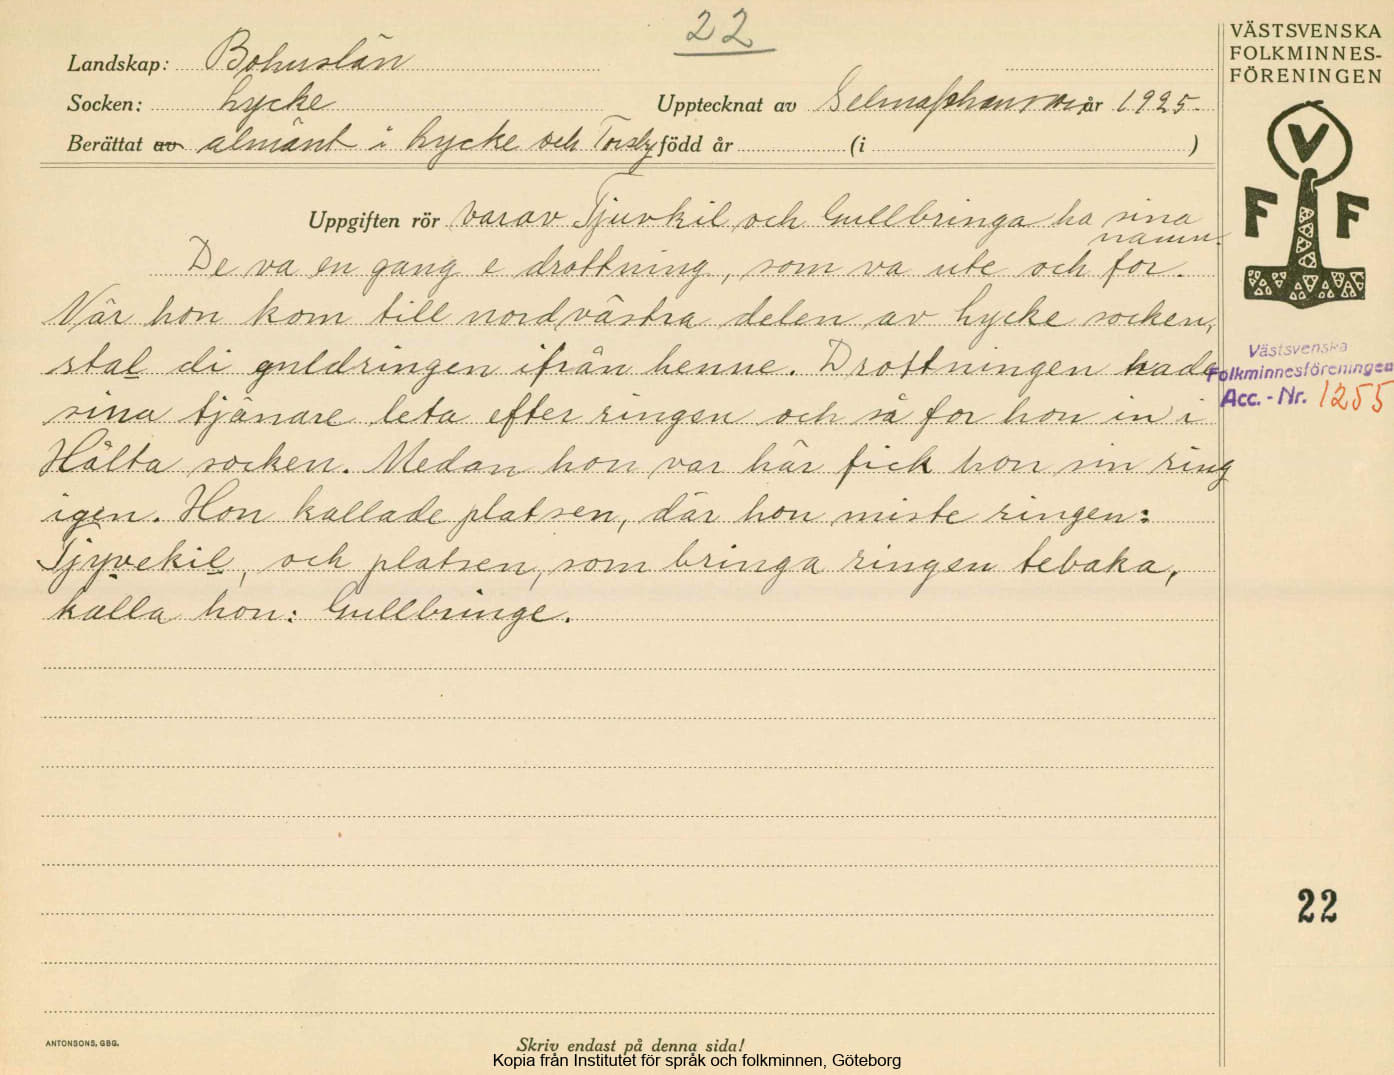 22
VÄSTSVENSKA
FOLKMINNES-
FÖRENINGEN
Landskap: Bohuslän
Socken: Lycke Upptecknat av Selma Johansson år 1925.
Berättat av almänt i Lycke och Torsby född år (i )
V
F F
Uppgiften rör varav Tjuvkil och Gullbringa ha sina
namn.
De va en gang e drottning, som va ute och for.
När hon kom till nordvästra delen av Lycke socken,
stal di guldringen ifrån henne. Drottningen hade
sina tjänare leta efter ringen och så for hon in i
Hålta socken. Medan hon var här fick hon sin ring
igen. Hon kallade platsen, där hon miste ringen:
Tjyvekil, och platsen, som bringa ringen tebaka,
kalla hon: Gullbringe.
Västsvenska
Folkminnesföreningen
Acc. - Nr. 1255
22
ANTONSONS, GBG.
Skriv endast på denna sida!
Kopia från Institutet för språk och folkminnen, Göteborg